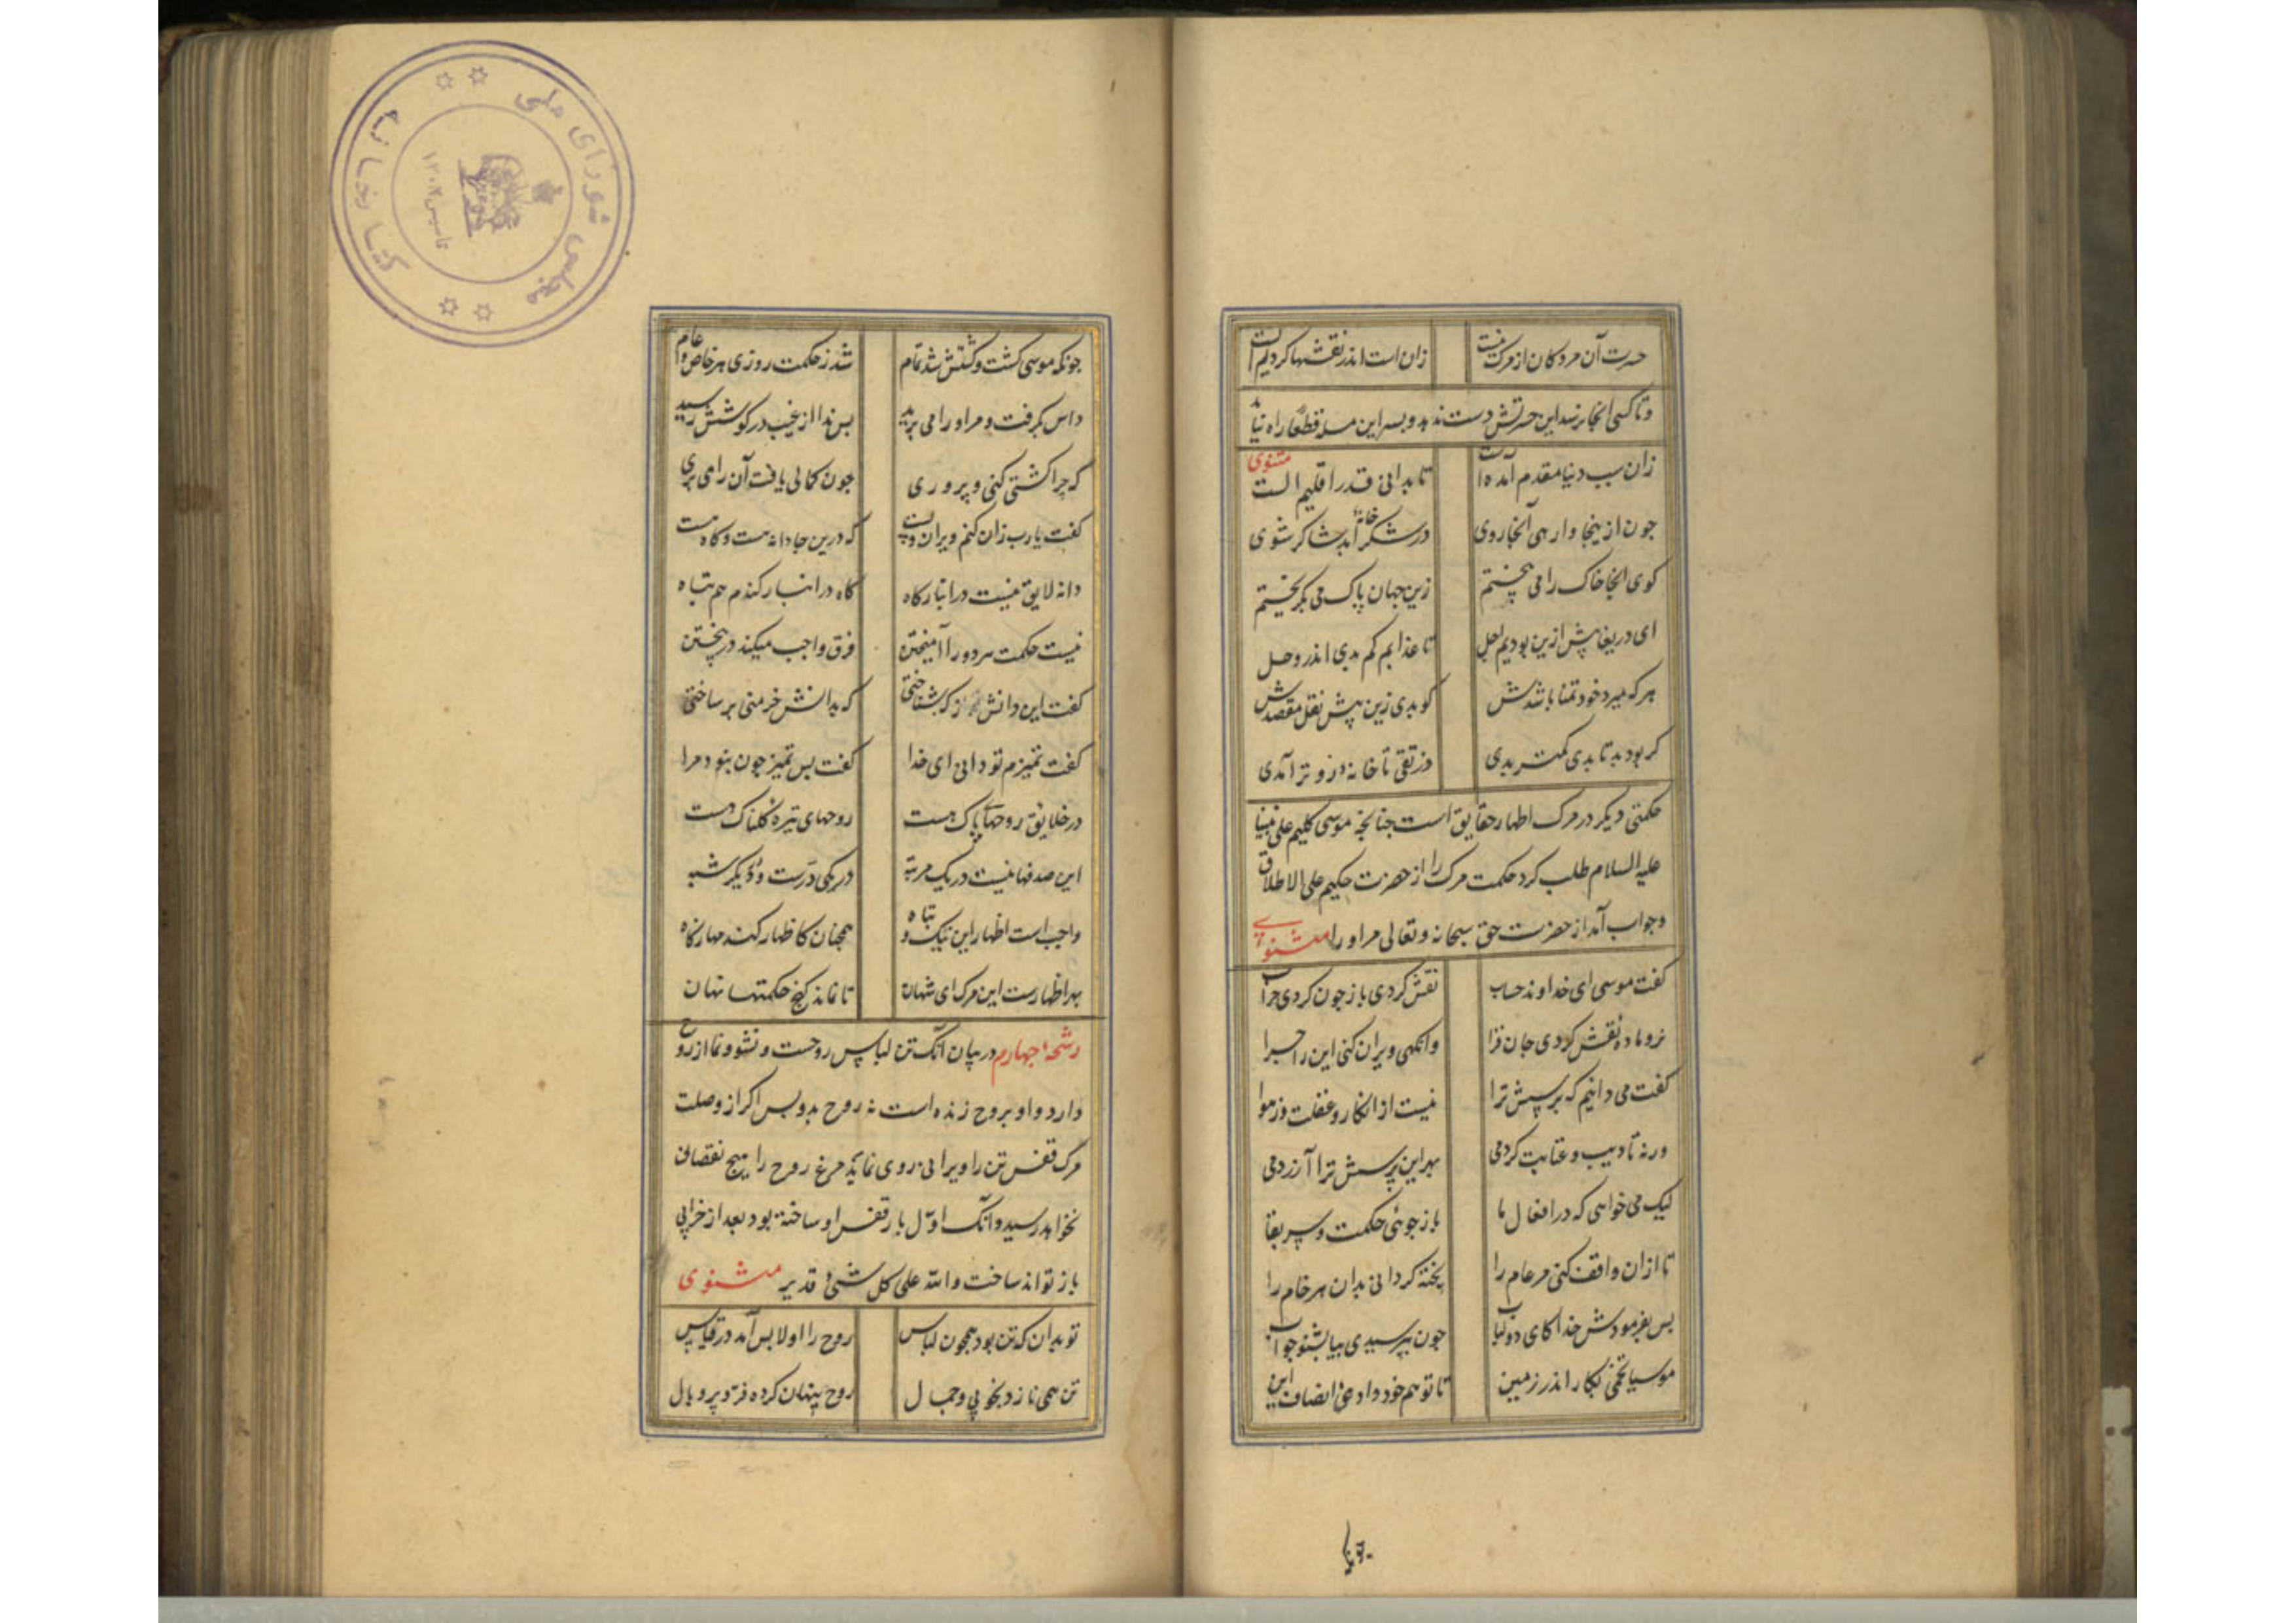 حسرت آن مردکان از مرک نیست زان است اندر نقشها کردیم ایست
و تا کسی آنجا نرسد این حسرتش دست ندهد و بسر این مسئله قطعاً راه نیابد مثنوی
زان سبب دنیا مقدم آمده است تا بدانی قدر اقلیم الست
چون از ینجا وارهی آنجا روی در شکرخانه ابد شاکر شوی
کوی آنجا خاک را می بیختم زین جهان پاک می بکریختم
ای دریغا پیش ازین بودیم اجل تا عذابم کم بدی اندر وحل
هر که میرد خود تمنا باشدش کو بدی زین پیش نقل مقصدش
کر بود بد تا بدی کمتر بدی ور تقی تا خانه زوتر آمدی
حکمتی دیکر در مرک اظهار حقایق است چنانچه موسی کلیم علی نبینا
علیه السلام طلب کرد حکمت مرک را از حضرت حکیم علی الاطلاق
و جواب آمد از حضرت حق سبحانه و تعالی مر او را مثنوی
کفت موسی ای خداوند حساب نقش کردی باز چون کردی خراب
نر و ماده نقش کردی جان فزا وانکهی ویران کنی این را چرا
کفت می دانیم که پرسش ترا نیست از انکار و غفلت وز هوا
ورنه تادیب و عتابت کردمی بهر این پرسش ترا آزردمی
لیک می خواهی که در افعال ما باز جوئی حکمت و سر بقا
تا ازان واقف کنی مر عام را پخته کردانی بدان هر خام را
پس بفرمودش خدا کای ذو لباب چون بپرسیدی بیا بشنو جواب
موسیا تخمی بکار اندر زمین تا تو هم خود وادهی انصاف این
تو بدان
چونکه موسی کشت و کشتش شد تمام شد ز حکمت روزی هر خاص و عام
داس بکرفت و مر او را می برید پس ندا از غیب در کوشش رسید
که چرا کشتی کنی و پروری چون کمالی یافت آن را می بری
کفت یارب زان کنم ویران و پست که درین جا دانه هست و کاه هست
دانه لایق نیست در انبار کاه کاه در انبار کندم هم تباه
نیست حکمت هر دو را آمیختن فرق واجب میکند در بیختن
کفت این دانش از که بشناختی که بدانش خرمنی بر ساختی
کفت تمیزم تو دانی ای خدا کفت پس تمیز چون بنود مرا
در خلایق روحهای پاک هست روحهای تیره کلناک هست
این صدفها نیست در یک مرتبه در یکی درست و دیکر شبه
واجب است اظهار این نیک و تباه همچنان کاظهار کندمها ز کاه
بهر اظهارست این مرک ای شهان تا نماند کنج حکمتها نهان
رشحه چهارم در بیان آنک تن لباس روحست و نشو و نما از روح
دارد و او بروح زنده است نه روح بدو پس اکر از وصلت
مرک قفس تن را ویرانی روی نماید مرغ روح را هیچ نقصان
نخواهد رسید و آنک اول بار قفس او ساخته بود بعد از خرابی
باز تواند ساخت والله علی کل شیء قدیر مثنوی
تو بدان که تن بود همچون لباس روح را او لابس آمد در قیاس
تن همی نازد بخوبی و جمال روح پنهان کرده فر و پر و بال
کتابخانه مجلس شورای ملی
تاسیس ۱۳۰۲